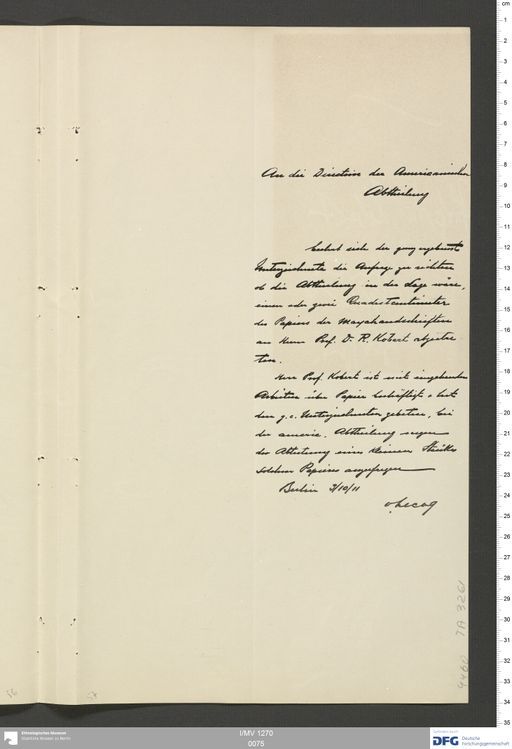 An die Direction der Americanischen
Abtheilung
beehrt sich der ganz ergebenst
Unterzeichnete die Anfrage zu richten
ob die Abtheilung in der Lage wäre,
einen oder zwei Quadratcentimeter
des Papiers der Mayahandschriften
an Herrn Prof. Dr. R. Kobert abzutre-
ten.
Herr Prof. Kobert ist mit eingehenden
Arbeiten über Papier beschäftigt u. hat
den g. e. Unterzeichneten gebeten, bei
der americ. Abtheilung wegen
der Abtretung eines kleinen Stückes
solchen Papieres anzufragen
Berlin 3/10/11
v. Lecoq
9460 TA 3261
56
57
cm
1
2
3
4
5
6
7
8
9
10
11
12
13
14
15
16
17
18
19
20
21
22
23
24
25
26
27
28
29
30
31
32
33
34
35
Ethnologisches Museum
Staatliche Museen zu Berlin
I/MV 1270
0075
DFG Deutsche
Forschungsgemeinschaft